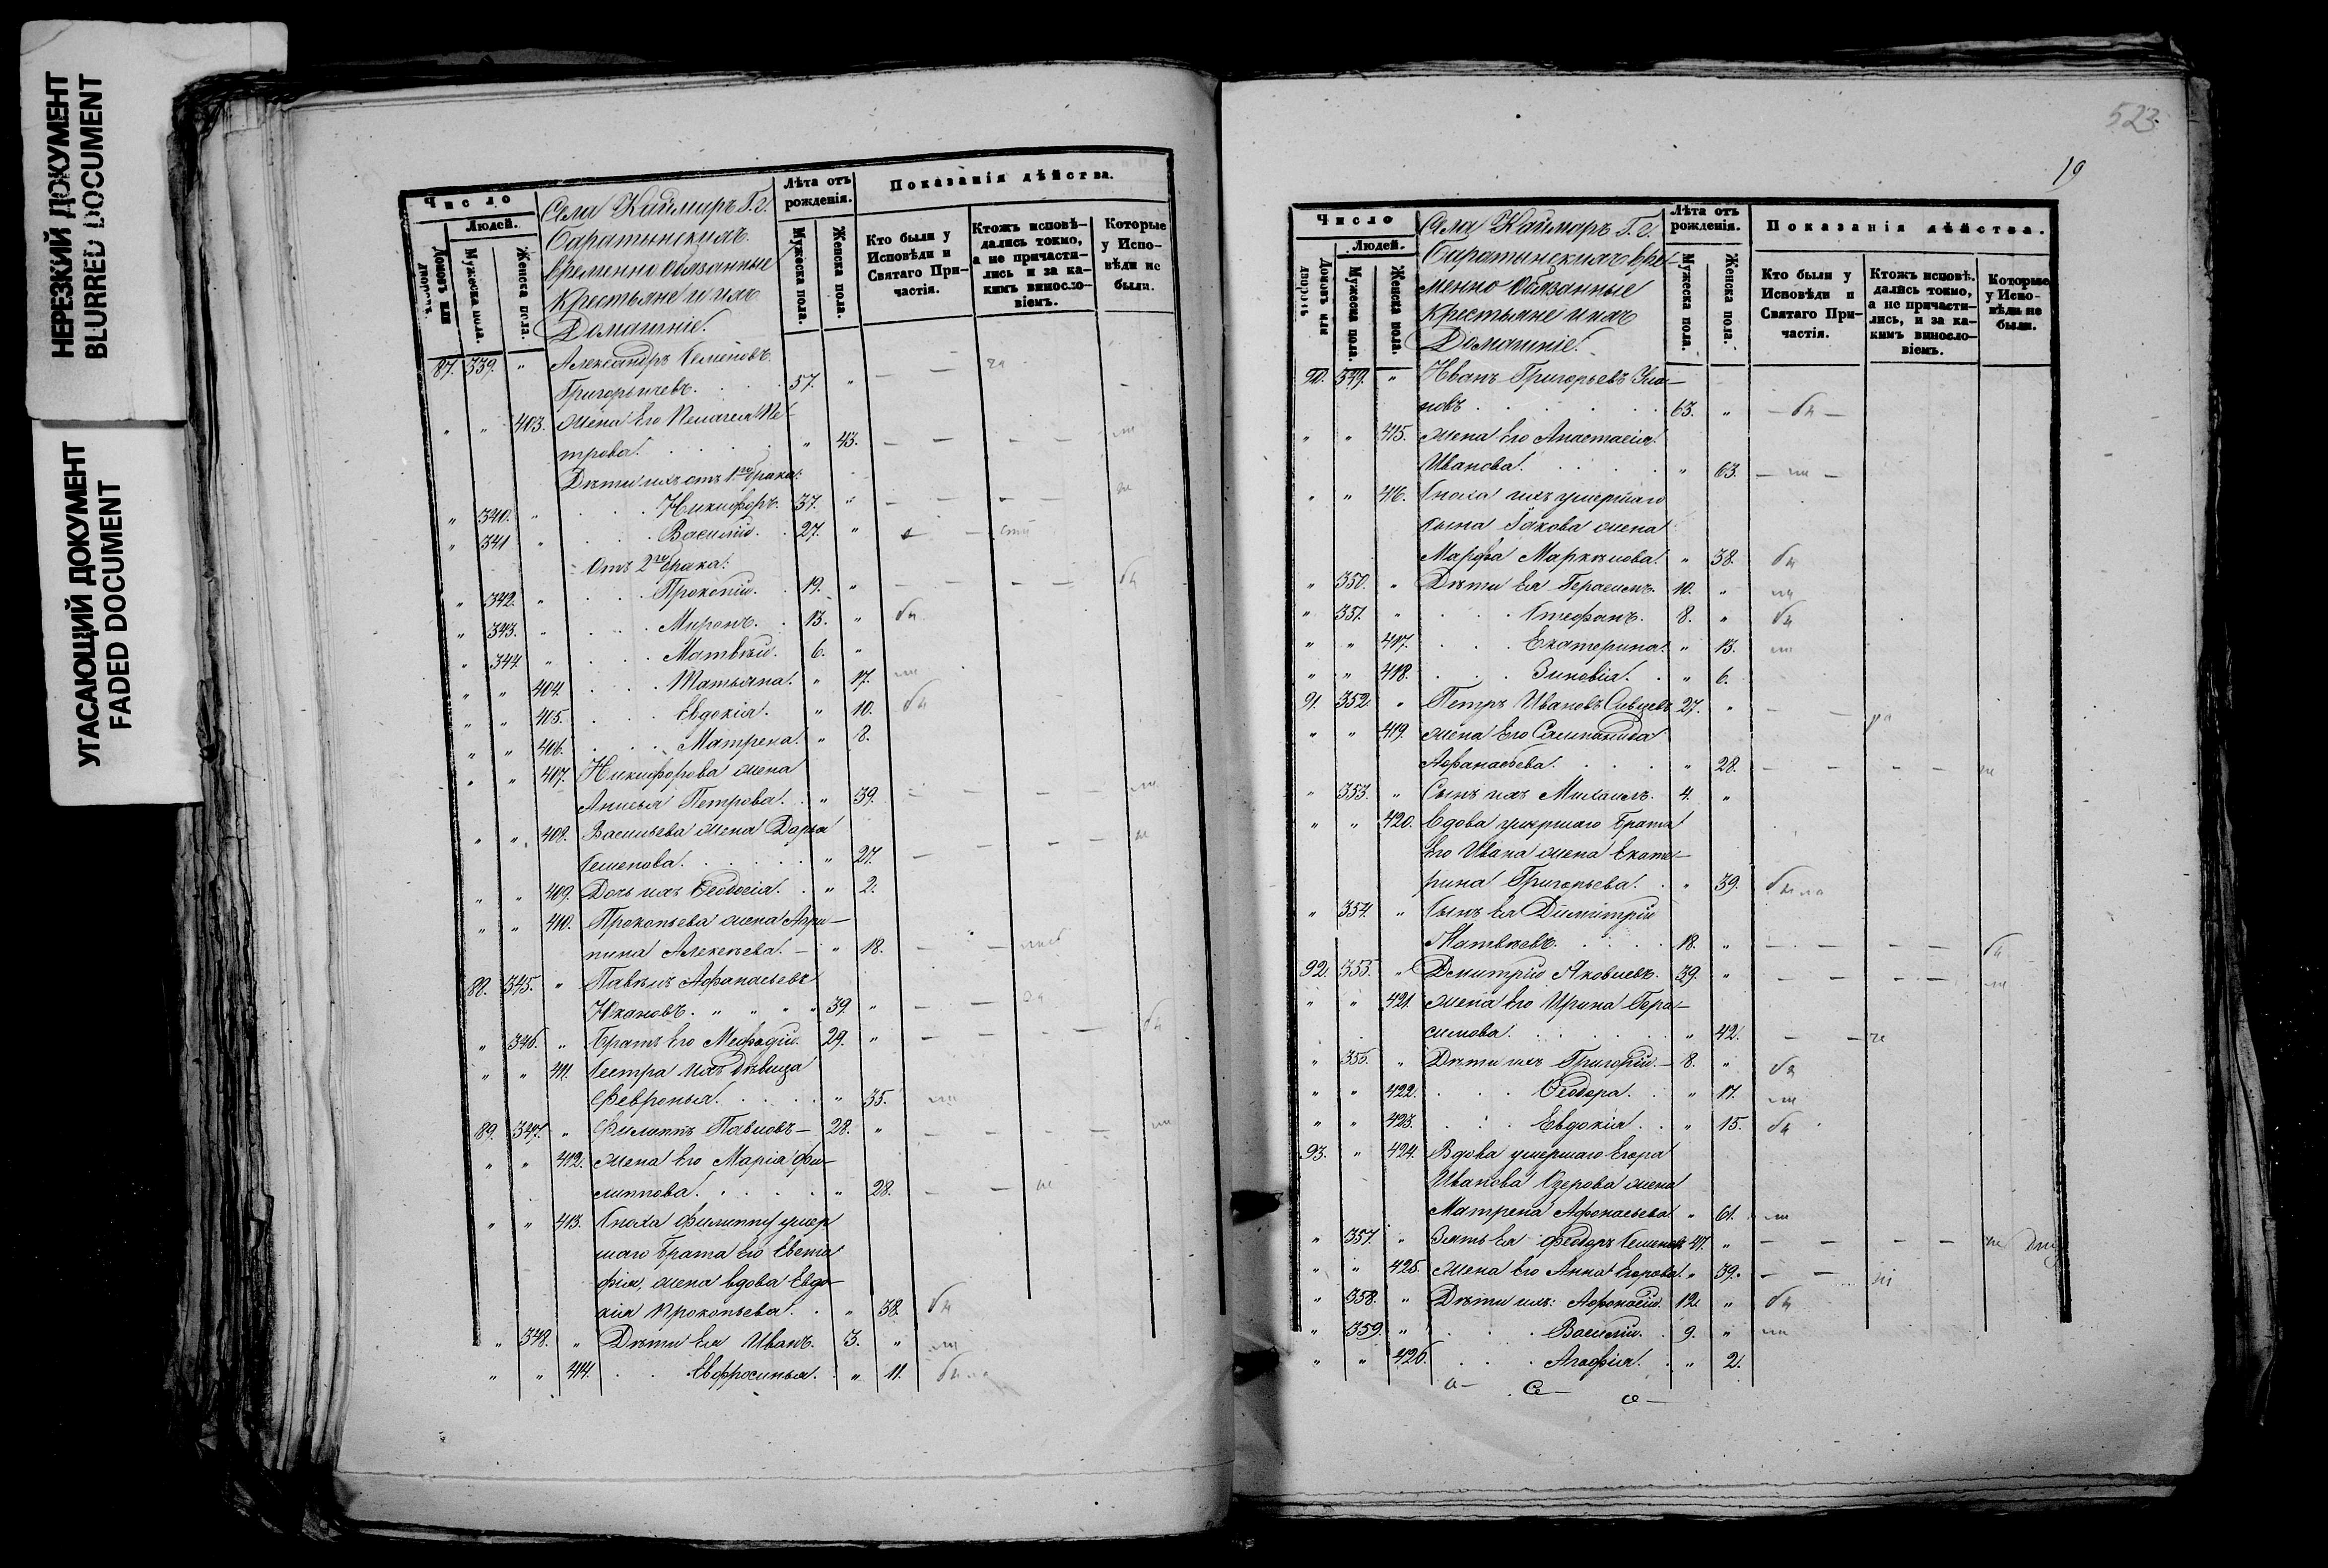 НЕРЕЗКИЙ ДОКУМЕНТ
BLURRED DOCUMENT
УГАСАЮЩИЙ ДОКУМЕНТ
FADED DOCUMENT
Число
Людей.
Домовъ или дворовъ.
Мужеска пола.
Женска пола.
Села Каймаръ Г. г.
Баратынскихъ
временно обязанные
Крестьяне и ихъ
Домашніе.
Лѣта отъ рожденія.
Мужеска пола.
Женска пола.
Показанія дѣйства.
Кто были у Исповѣди и Святаго Причастія.
Ктожъ исповѣдались токмо, а не причастились и за какимъ винословіемъ.
Которые у Исповѣди не были.
87. 339. " Александръ Семеновъ
Григорьичевъ. 57. "
" " 403. жена его Пелагея Пе-
трова. " 43.
Дѣти ихъ отъ 1го брака:
" 340. " Никифоръ. 37. "
" 341 " Василій. 27. "
Отъ 2го брака:
" 342. " Прокопій. 19. "
" 343. " Миронъ. 13. "
" 344 " Матвѣй. 6. "
" " 404. Татьяна. " 17.
" " 405. Евдокія. " 10.
" " 406. Матрена. " 8.
" " 407. Никифорова жена
Анисья Петрова. " 39.
" " 408. Васильева жена Дарья
Семенова. " 27.
" " 409. Дочь ихъ Ѳеодосія. " 2.
" " 410. Прокопьева жена Агри-
пина Алексѣева. " 18.
88. 345. " Павелъ Афанасьевъ
39. "
" 346. " Братъ его Мефодій. 29. "
" " 411. Сестра ихъ дѣвица
Февронья. " 35.
89. 347. " Филиппъ Павловъ 28. "
" " 412. жена его Марія Фи-
липпова. " 28.
" " 413. Сноха Филиппу умер
шаго брата его Евста
фія, жена вдова Евдо-
кія Прокопьева. " 38.
" 348. " Дѣти ея Иванъ. 3. "
" " 414. Евфросинья. " 11. была
523
19
Число
Людей.
Домовъ или дворовъ.
Мужеска пола.
Женска пола.
Села Каймаръ Г. г.
Баратынскихъ вре-
менно обязанные
Крестьяне и ихъ
Домашніе.
Лѣта отъ рожденія.
Мужеска пола.
Женска пола.
Показанія дѣйства.
Кто были у Исповѣди и Святаго Причастія.
Ктожъ исповѣдались токмо, а не причастились, и за какимъ винословіемъ.
Которые у Исповѣди не были.
90. 349. " Иванъ Григорьевъ
63. "
" " 415. жена его Анастасія
Иванова. " 63.
" " 416. Сноха ихъ умершаго
сына Іакова жена
Марфа Маркелова. " 38.
" 350. " Дѣти ея Герасимъ. 10. "
" 351. " Стефанъ. 8. "
" " 417. Екатерина. " 13.
" " 418. Зиновія. " 6.
91. 352. " Петръ Ивановъ 27. "
" " 419. жена его Саломонида
Афанасьева. " 28.
" 353. " Сынъ ихъ Михаилъ. 4. "
" " 420. Вдова умершаго брата
его Ивана жена Екате-
рина Григорьева. " 39. была
" 354. " Сынъ ея Димитрій
Матвѣевъ. 18. "
92. 355. " Дмитрій Яковлевъ. 39. "
" " 421. жена его Ирина Гера-
симова. " 42.
" 356. " Дѣти ихъ Григорій. 8. "
" " 422. Ѳеодора. " 17.
" " 423. Евдокія. " 15.
93. " 424. Вдова умершаго Егора
Иванова Озерова жена
Матрена Афонасьева " 61.
" 357. " Зять ея Феодоръ Семеновъ 41. "
" " 425. жена его Анна Егорова. " 39.
" 358. " Дѣти ихъ: Афонасій. 12. "
" 359. " Василій. 9. "
" " 426. Агафія. " 2.